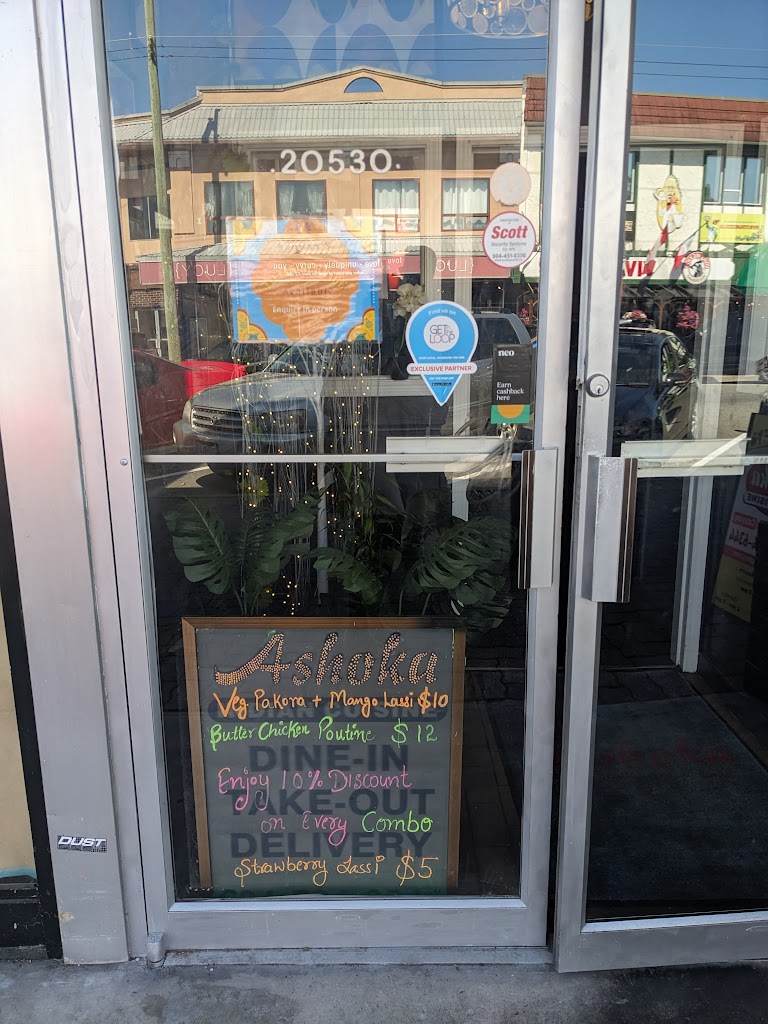 .20530.
Scott
Security Systems
604-461-0330
love · uniquely · curry · you
Enquire in person
Find us on
GET in the LOOP
EXCLUSIVE PARTNER
neo
Earn
cashback
here
Ashoka
Veg Pakora + Mango Lassi $10
Butter Chicken Poutine $12
DINE-IN
Enjoy 10% Discount
TAKE-OUT
on Every Combo
DELIVERY
Strawberry Lassi $5
DUST